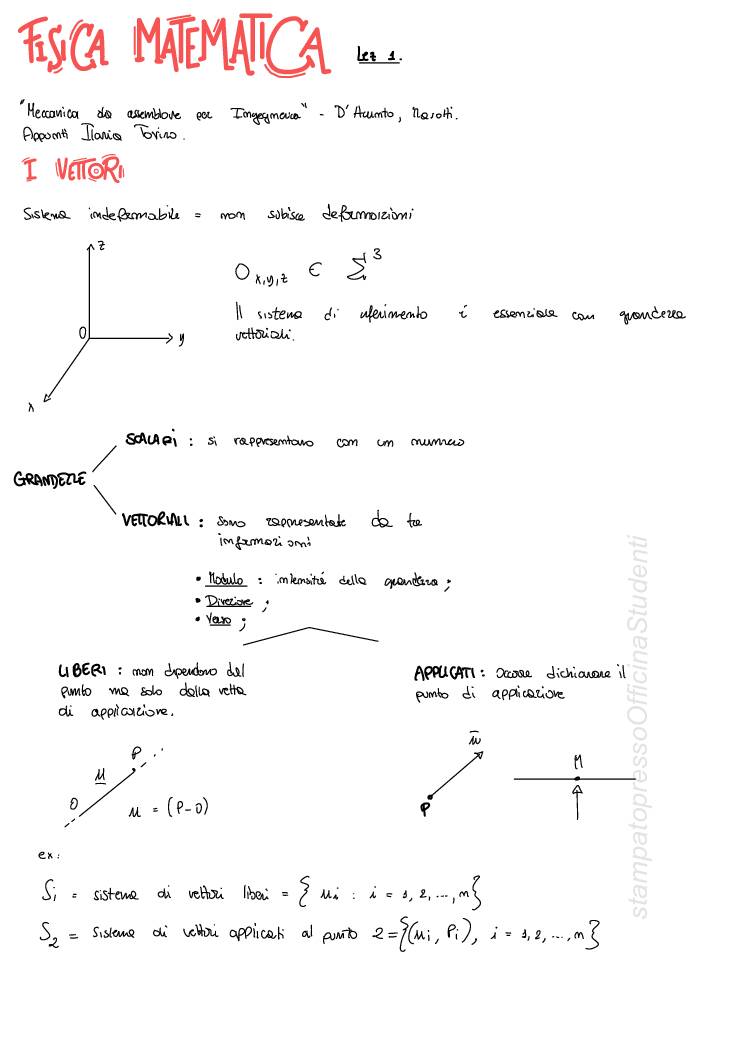 FISICA MATEMATICA Lez 1.
"Meccanica da assemblare per Ingegneria" - D'Acunto, Masotti.
Appunti Ilaria Torino.
I VETTORI
Sistema indeformabile = non subisce deformazioni
z
O x,y,z ∈ Σ³
Il sistema di riferimento è essenziale con grandezze
vettoriali.
O
y
x
SCALARI : si rappresentano con un numero
GRANDEZZE
VETTORIALI : sono rappresentate da tre
informazioni
• Modulo : intensità della grandezza ;
• Direzione ;
• Verso ;
LIBERI : non dipendono dal
punto ma solo dalla retta
di applicazione.
APPLICATI : Occorre dichiarare il
punto di applicazione
P
u
O
u = (P-O)
P
M
ex:
S₁ = sistema di vettori liberi = { ui : i = 1, 2, ..., n}
S₂ = Sistema di vettori applicati al punto 2 = {(ui, Pi), i = 1, 2, ..., n}
stampatopressoOfficinaStudenti